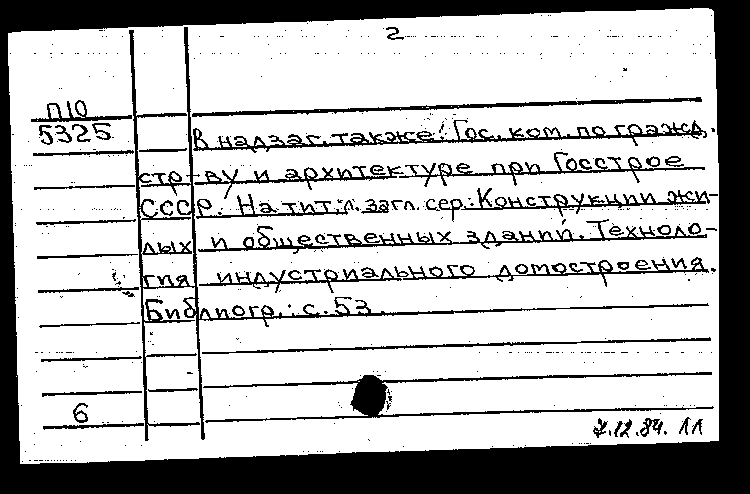 2
П10
5325
В надзаг. также: Гос. ком. по гражд.
стр-ву и архитектуре при Госстрое
СССР. На тит. л. загл. сер.: Конструкции жи-
лых и общественных зданий. Техноло-
гия индустриального домостроения.
Библиогр.: с. 53.
6
7.12.84. ЛЛ